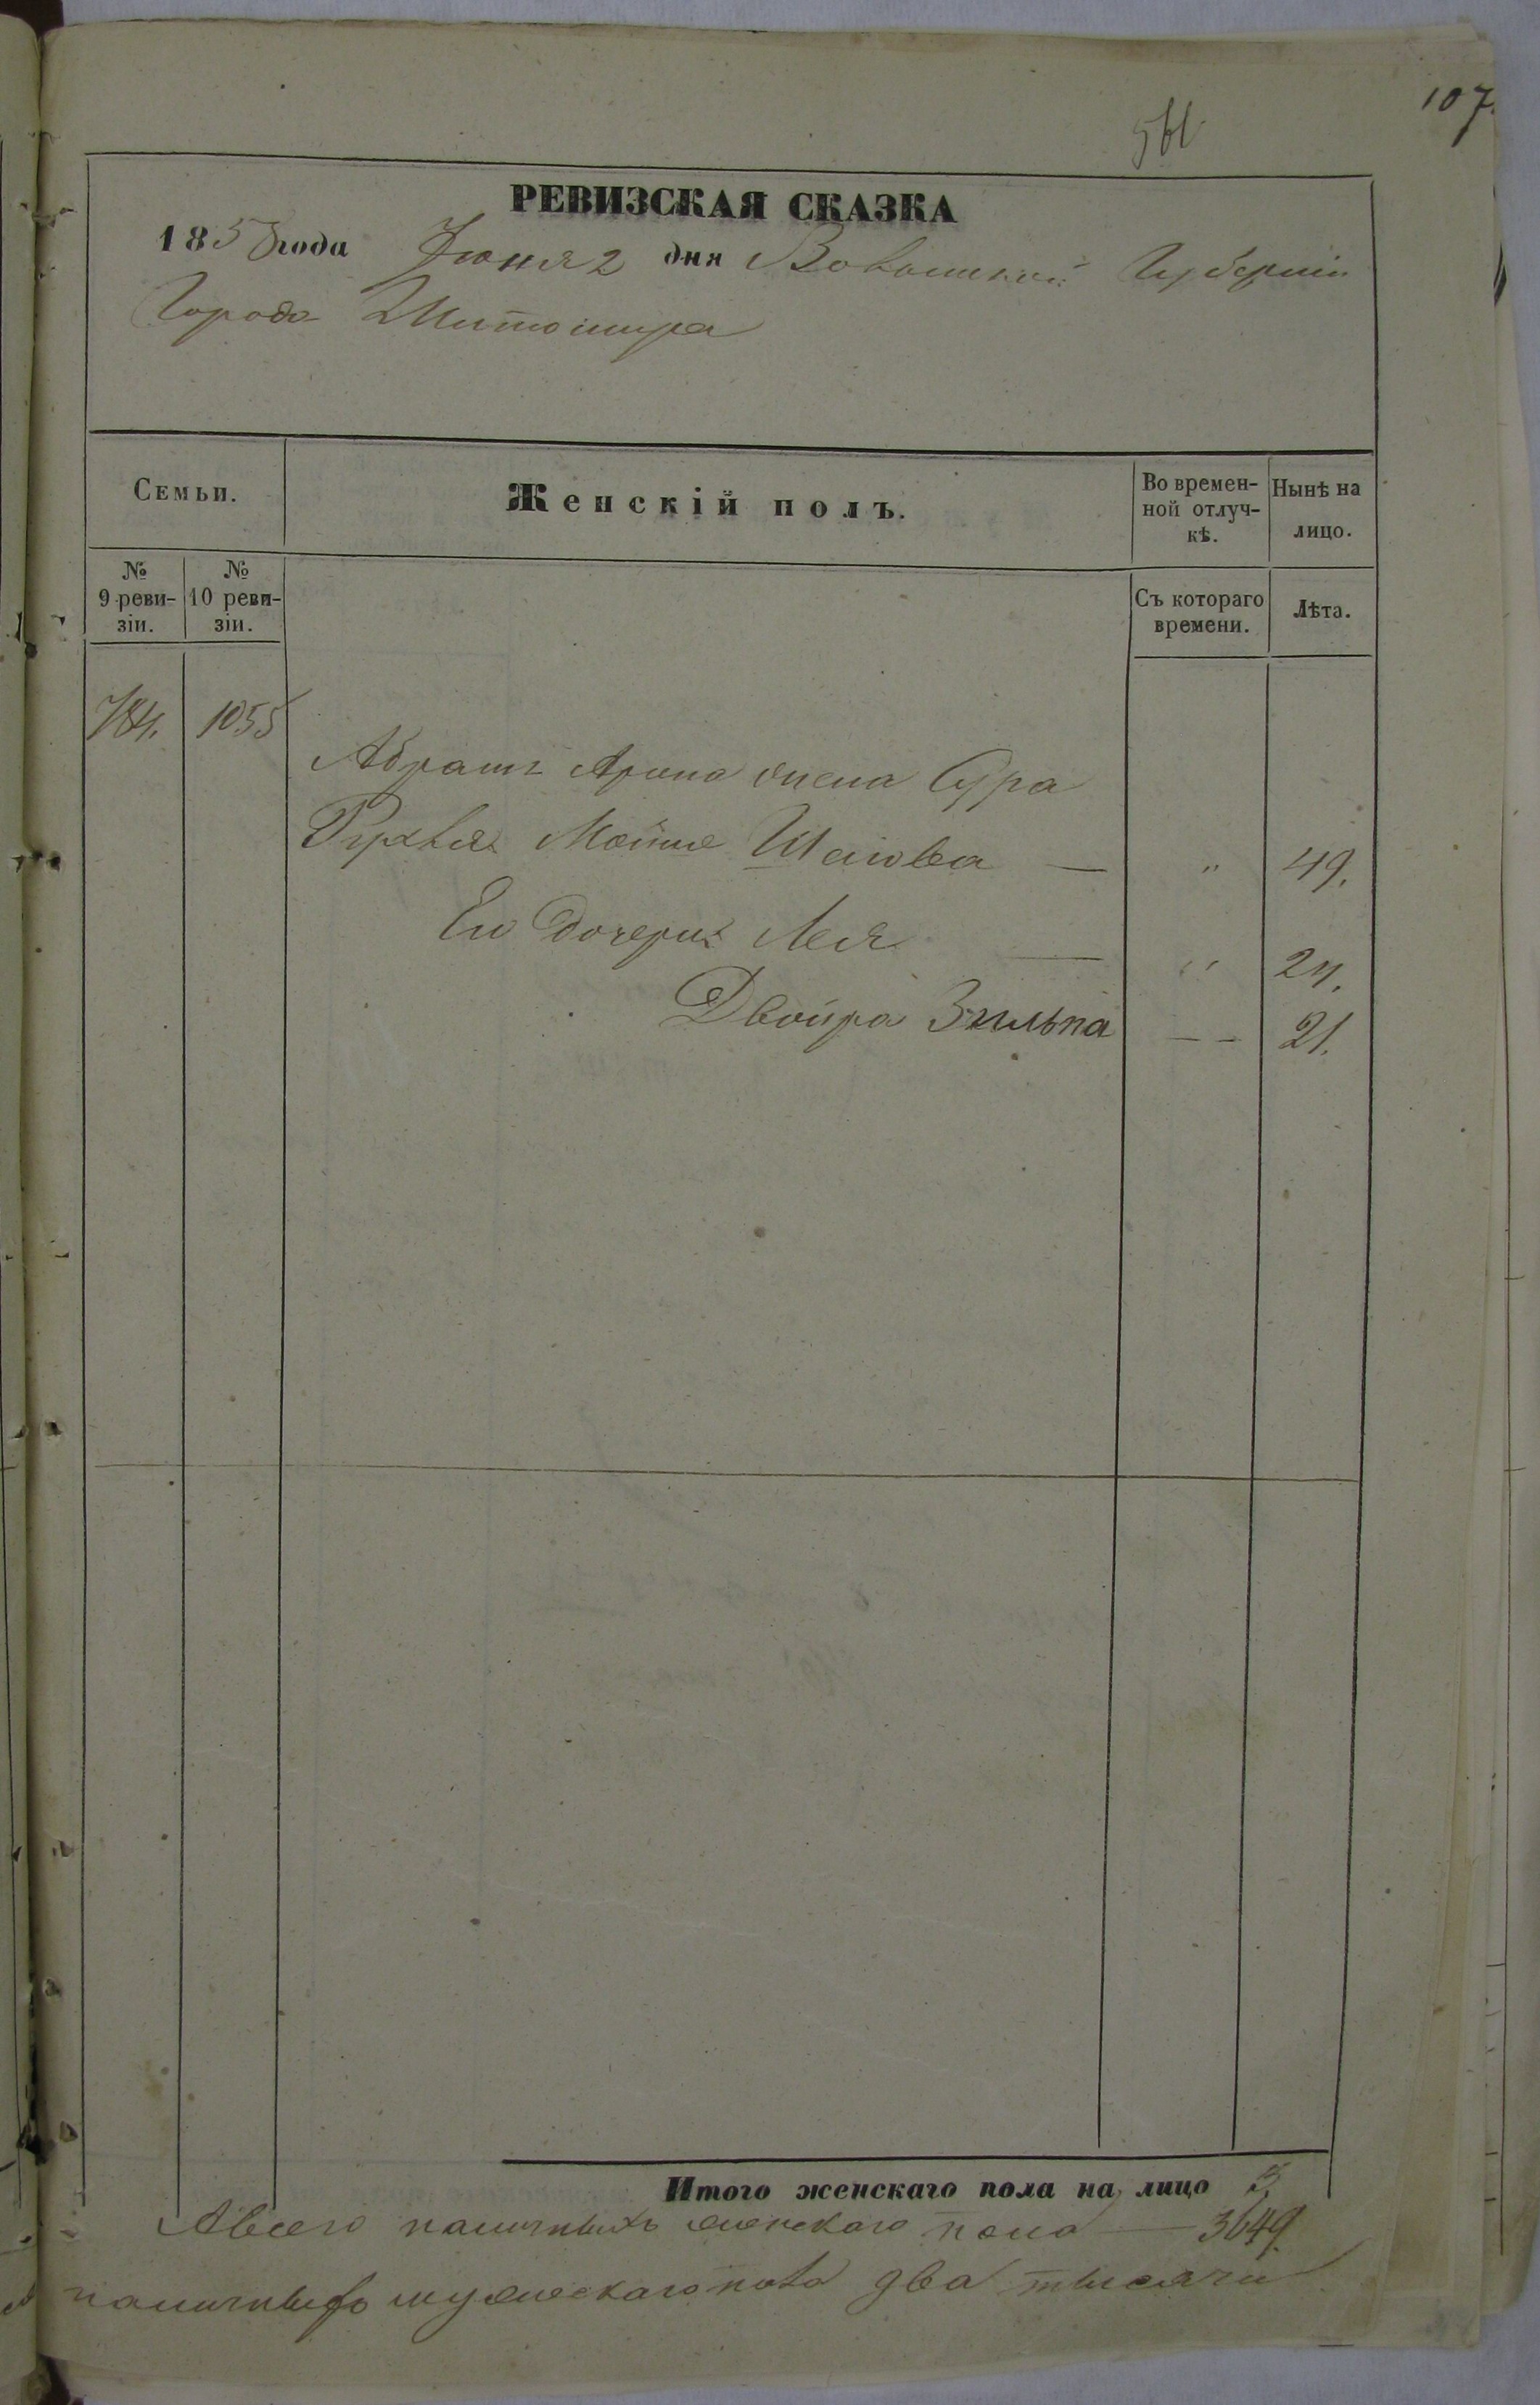 107.
561
РЕВИЗСКАЯ СКАЗКА
1858 года Июня 2 дня Волынской Губерніи
Города Житомира
Семьи.
Женскій полъ.
Во времен-
ной отлуч-
кѣ.
Нынѣ на
лицо.
№
9 реви-
зіи.
№
10 реви-
зіи.
Съ котораго
времени.
Лѣта.
784. 1055
Абрамъ Арона жена Сура
Рухля Мошко 〃 49.
Его дочери Лея 〃 24.
Двойра - - 21.
Итого женскаго пола на лицо 3
А всего наличныхъ женскаго пола — 3649
наличныхъ мужескаго пола два тысячи